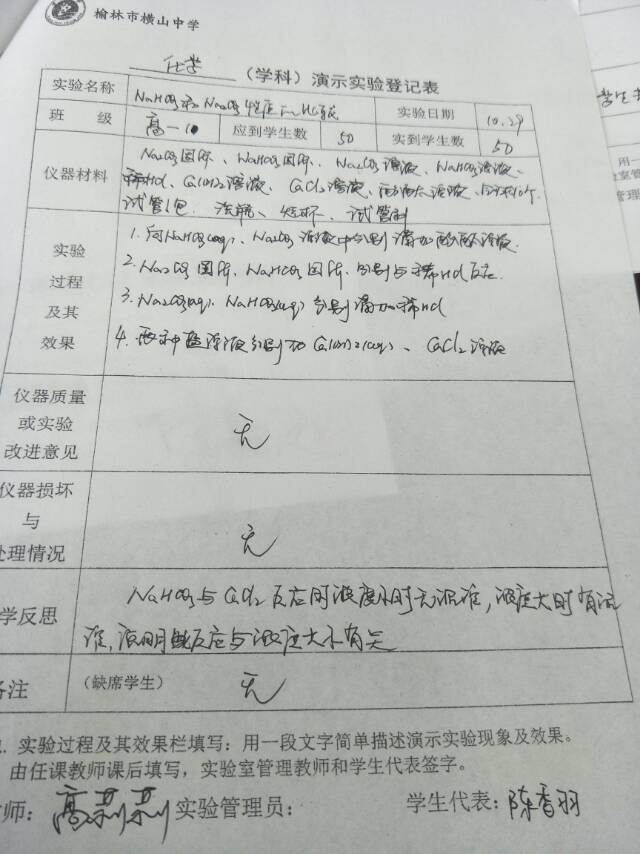 榆林市横山中学
化学 (学科)演示实验登记表
实验名称 NaHCO3和Na2CO3性质 实验日期 10.29
班 级 高一10 应到学生数 50 实到学生数 50
仪器材料 Na2CO3固体、NaHCO3固体、Na2CO3溶液、NaHCO3溶液、
稀HCl、Ca(OH)2溶液、CaCl2溶液、酚酞溶液、
试管1包、烧瓶、烧杯、试管刷
实验过程及其效果
1. 向NaHCO3(aq)、Na2CO3溶液中分别滴加酚酞溶液.
2. Na2CO3固体、NaHCO3固体.分别与稀HCl反应.
3. Na2CO3(aq)、NaHCO3(aq)分别滴加稀HCl
4. 两种盐溶液分别加Ca(OH)2(aq)、CaCl2溶液
仪器质量或实验改进意见 无
仪器损坏与处理情况 无
学反思 NaHCO3与CaCl2反应时浓度小时无沉淀,浓度大时有沉
淀,说明此反应与浓度大小有关
备注 (缺席学生) 无
实验过程及其效果栏填写:用一段文字简单描述演示实验现象及效果。
由任课教师课后填写,实验室管理教师和学生代表签字。
师: 高莉莉 实验管理员: 学生代表: 陈香羽